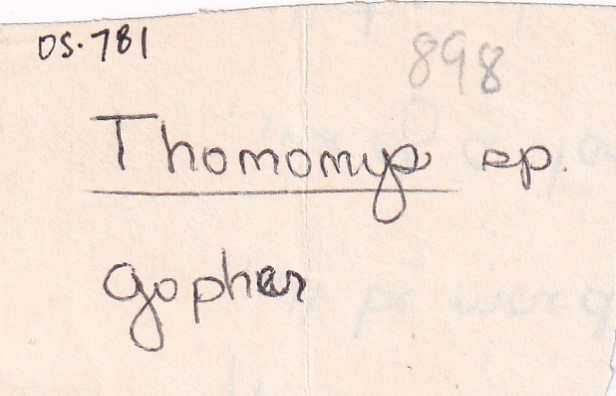 OS.781
898
Thomomys sp.
gopher